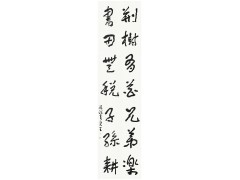 荆樹有花兄弟樂
書田無税子孫耕